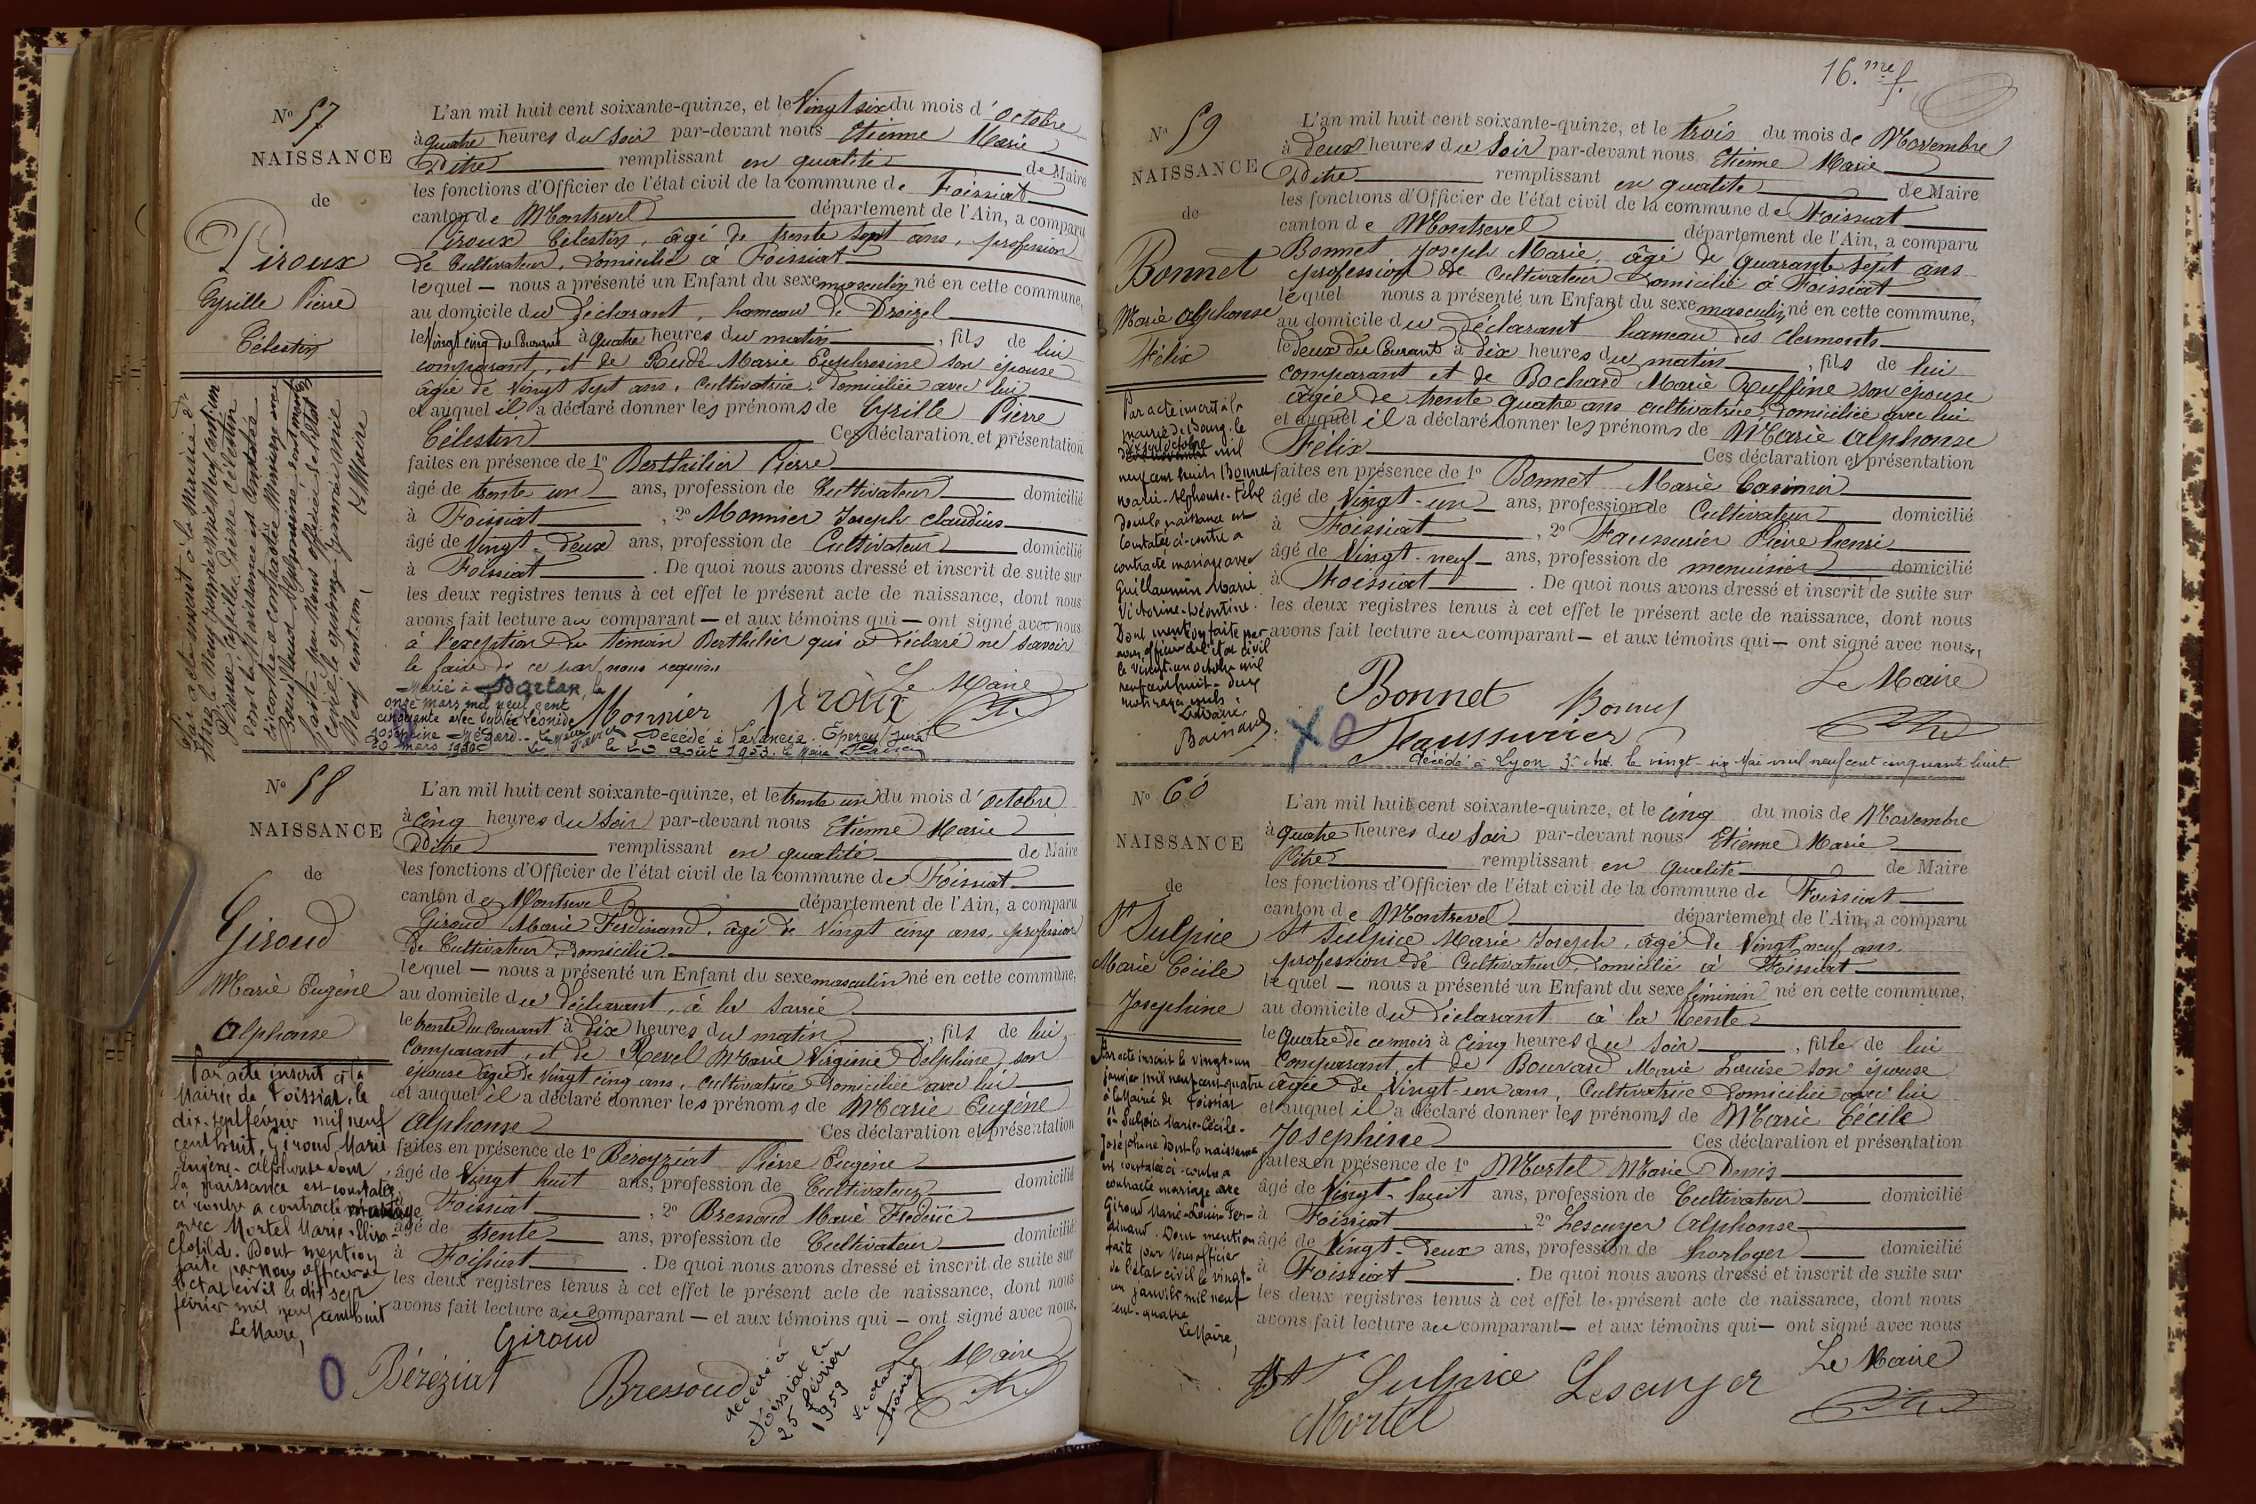 No 57
NAISSANCE
de
Piroux
Cyrille Pierre
Célestin
L'an mil huit cent soixante-quinze, et le Vingt six du mois d'octobre
à quatre heures du soir par-devant nous Etienne Marie
Pitre remplissant en qualité de Maire
les fonctions d'Officier de l'état civil de la commune de Foissiat
canton de Montrevel département de l'Ain, a comparu
Piroux Célestin, âgé de trente sept ans, profession
de Cultivateur, domicilié à Foissiat
lequel — nous a présenté un Enfant du sexe masculin né en cette commune,
au domicile du déclarant, hameau de
le Vingt cinq du Courant à quatre heures du matin, fils de lui
comparant, et de Marie Euphrosine son épouse
âgée de vingt sept ans, cultivatrice, domiciliée avec lui
et auquel il a déclaré donner les prénoms de Cyrille Pierre
Célestin Ces déclaration et présentation
faites en présence de 1o Berthilier Pierre
âgé de trente un ans, profession de Cultivateur domicilié
à Foissiat, 2o Monnier Joseph Claudius
âgé de Vingt-deux ans, profession de Cultivateur domicilié
à Foissiat. De quoi nous avons dressé et inscrit de suite sur
les deux registres tenus à cet effet le présent acte de naissance, dont nous
avons fait lecture au comparant — et aux témoins qui — ont signé avec nous
à l'exception du témoin Berthilier qui a déclaré ne savoir
le faire de ce par nous requis
Le Maire
Marié à le
onze mars mil neuf cent
cinquante avec Léonide
Joséphine
20 mars 1950
Monnier Piroux
Décédé à Lavancia-Epercy Jura
le 23 août 1953. Le Maire
No 58
NAISSANCE
de
Giroud
Marie Eugène
Alphonse
Par acte inscrit à la
Mairie de Foissiat, le
dix-sept février mil neuf
cent huit, Giroud Marie
Eugène-Alphonse dont
la naissance est constatée
ci contre a contracté mariage
avec Mortel Marie-Elisa-
Clotilde. Dont mention
faite par nous officier de
l'état civil le dix sept
février mil neuf cent huit
Le Maire,
L'an mil huit cent soixante-quinze, et le trente un du mois d'octobre
à cinq heures du soir par-devant nous Etienne Marie
Pitre remplissant en qualité de Maire
les fonctions d'Officier de l'état civil de la commune de Foissiat
canton de Montrevel département de l'Ain, a comparu
Giroud Marie Ferdinand, âgé de Vingt cinq ans, profession
de Cultivateur, domicilié
lequel — nous a présenté un Enfant du sexe masculin né en cette commune,
au domicile du déclarant, à la Sarrié
le trente du courant à dix heures du matin, fils de lui
comparant, et de Revel Marie Virginie Delphine, son
épouse âgée de Vingt cinq ans, cultivatrice domiciliée avec lui
et auquel il a déclaré donner les prénoms de Marie Eugène
Alphonse Ces déclaration et présentation
faites en présence de 1o Béréziat Pierre Eugène
âgé de Vingt huit ans, profession de Cultivateur domicilié
Foissiat, 2o Bressoud Marie Frédéric
âgé de trente ans, profession de Cultivateur domicilié
à Foissiat. De quoi nous avons dressé et inscrit de suite sur
les deux registres tenus à cet effet le présent acte de naissance, dont nous
avons fait lecture au comparant — et aux témoins qui — ont signé avec nous.
Giroud
Béréziat Bressoud Le Maire
décédé à
Foissiat le
25 février
1959
16.me f.
No 59
NAISSANCE
de
Bonnet
Marie Alphonse
Félix
Par acte inscrit à la
mairie de Bourg, le
mil
neuf cent huit Bonnet
Marie-Alphonse-Félix
dont la naissance est
constatée ci-contre a
contracté mariage avec
Guillaumin Marie
Victorine-Léontine.
Dont mention faite par
nous officier de l'état civil
le vingt-un octobre mil
neuf cent huit - deux
mots rayés nuls
Le Maire
L'an mil huit cent soixante-quinze, et le trois du mois de Novembre
à deux heures du soir par-devant nous Etienne Marie
Pitre remplissant en qualité de Maire
les fonctions d'Officier de l'état civil de la commune de Foissiat
canton de Montrevel département de l'Ain, a comparu
Bonnet Joseph Marie, âgé de quarante sept ans
profession de Cultivateur domicilié à Foissiat
lequel nous a présenté un Enfant du sexe masculin né en cette commune,
au domicile du déclarant hameau des Clermonts
le deux du Courant à dix heures du matin, fils de lui
comparant et de Bochard Marie Ruffine son épouse
âgée de trente quatre ans cultivatrice, domiciliée avec lui
et auquel il a déclaré donner les prénoms de Marie Alphonse
Félix Ces déclaration et présentation
faites en présence de 1o Bonnet Marie Casimir
âgé de Vingt-un ans, profession de Cultivateur domicilié
à Foissiat, 2o Faussurier Pierre henri
âgé de Vingt-neuf ans, profession de menuisier domicilié
à Foissiat. De quoi nous avons dressé et inscrit de suite sur
les deux registres tenus à cet effet le présent acte de naissance, dont nous
avons fait lecture au comparant — et aux témoins qui — ont signé avec nous,
Le Maire
Bonnet Bonnet
Faussurier
décédé à Lyon 3e Arr. le vingt-six Mai mil neuf cent cinquante huit
No 60
NAISSANCE
de
St Sulpice
Marie Cécile
Josephine
Par acte inscrit le vingt-un
janvier mil neuf cent quatre
à la Mairie de Foissiat
St Sulpice Marie-Cécile-
Joséphine dont la naissance
est constatée ci-contre a
contracté mariage avec
Giroud Marie-Louis-Fer-
dinand. Dont mention
faite par nous officier
de l'état civil le vingt-
un janvier mil neuf
cent-quatre
Le Maire,
L'an mil huit cent soixante-quinze, et le cinq du mois de Novembre
à quatre heures du soir par-devant nous Etienne Marie
Pitre remplissant en qualité de Maire
les fonctions d'Officier de l'état civil de la commune de Foissiat
canton de Montrevel département de l'Ain, a comparu
St Sulpice Marie Joseph, âgé de Vingt neuf ans
profession de Cultivateur, domicilié à Foissiat
lequel — nous a présenté un Enfant du sexe féminin né en cette commune,
au domicile du déclarant à la Vente
le quatre de ce mois à cinq heures du soir, fille de lui
comparant, et de Bouvard Marie Louise son épouse
âgée de Vingt-un ans, Cultivatrice domiciliée avec lui
et auquel il a déclaré donner les prénoms de Marie Cécile
Josephine Ces déclaration et présentation
faites en présence de 1o Mortel Marie-Denis
âgé de Vingt-huit ans, profession de Cultivateur domicilié
à Foissiat, 2o Lescuyer Alphonse
âgé de Vingt-deux ans, profession de horloger domicilié
à Foissiat. De quoi nous avons dressé et inscrit de suite sur
les deux registres tenus à cet effet le présent acte de naissance, dont nous
avons fait lecture au comparant — et aux témoins qui — ont signé avec nous
Le Maire
St Sulpice Lescuyer
Mortel